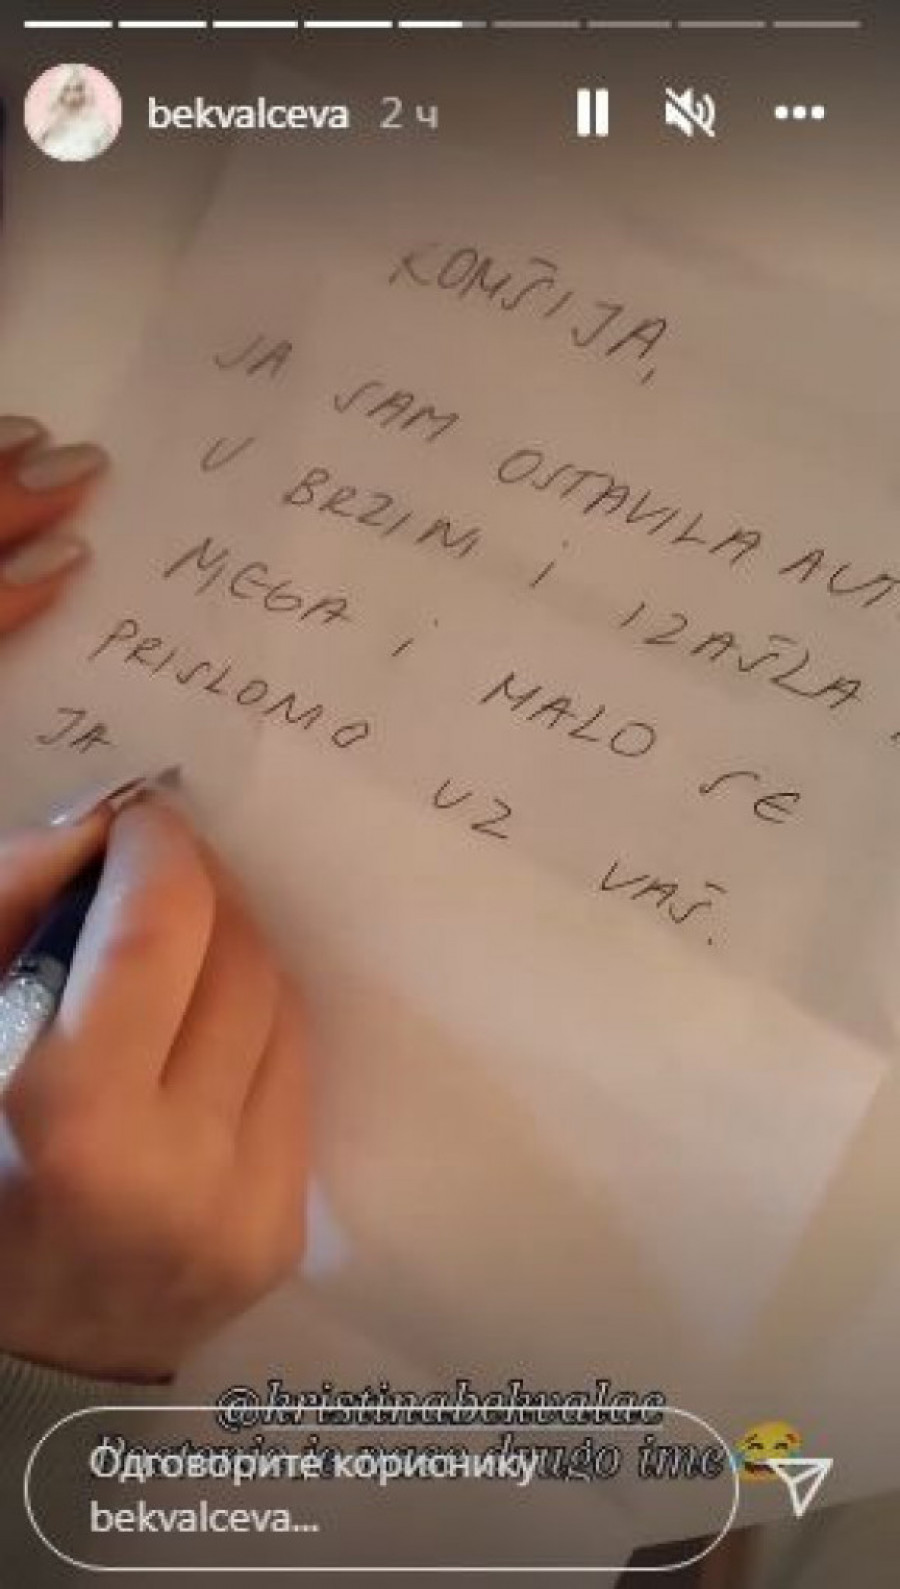 bekvalceva 2 ч
KOMŠIJA,
JA SAM OSTAVILA AUT
U BRZINI I IZAŠLA
NJEGA I MALO SE
PRISLONIO UZ VAŠ.
JA
@kristinabekvalac
drugo ime 😂
Одговорите кориснику
bekvalceva...